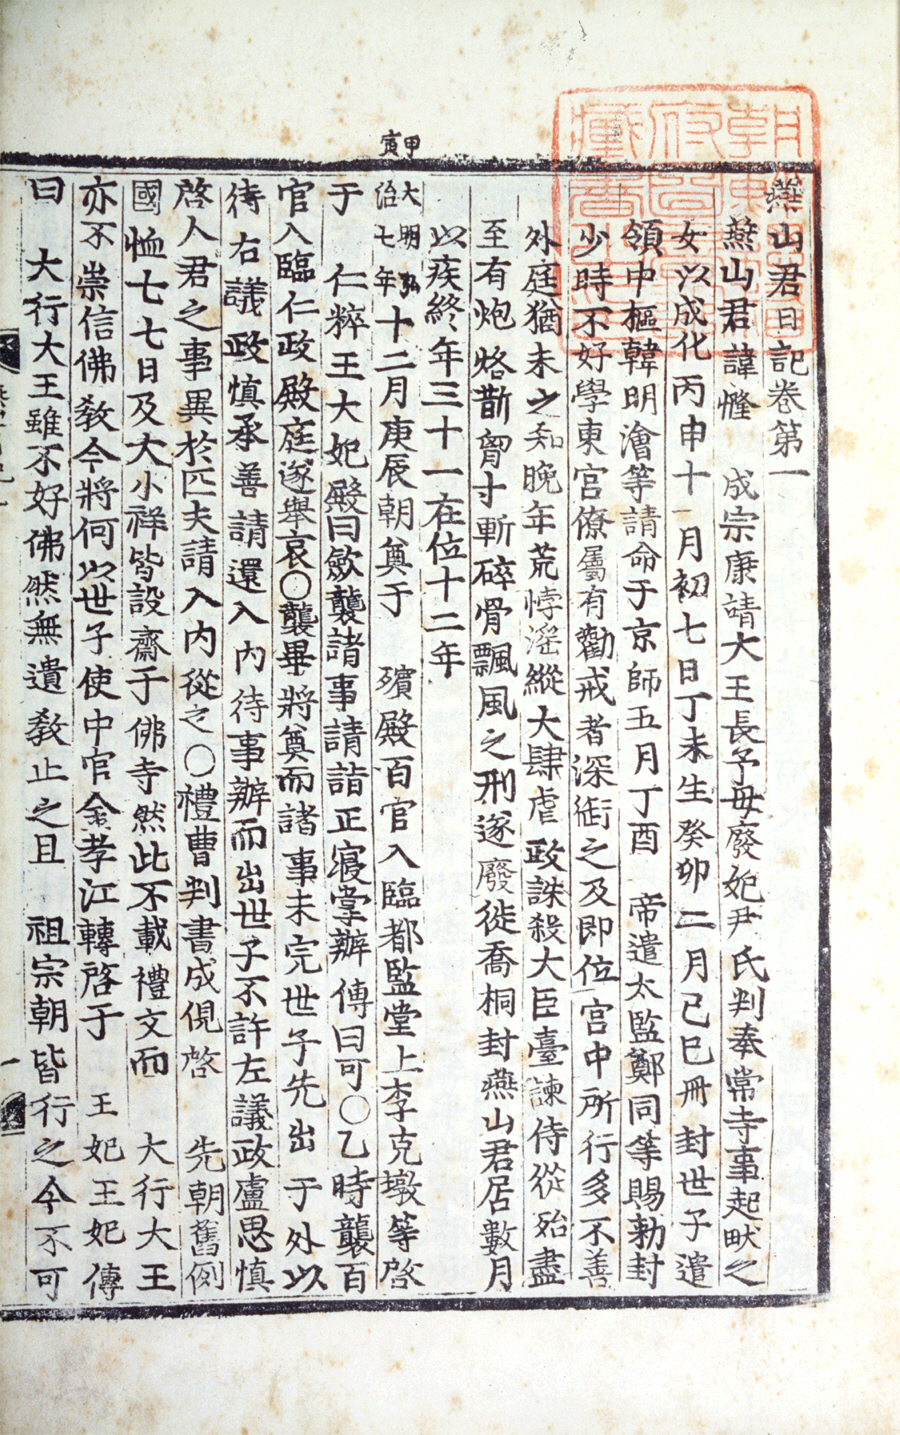 甲寅
燕山君日記卷第一
燕山君諱㦕 成宗康靖大王長子母廢妃尹氏判奉常寺事起畎之
女以成化丙申十一月初七日丁未生癸卯二月己巳冊封世子遣
領中樞韓明澮等請命于京師五月丁酉 帝遣太監鄭同等賜勅封
少時不好學東宮僚屬有勸戒者深銜之及即位宮中所行多不善
外庭猶未之知晩年荒悖淫縱大肆虐政誅殺大臣臺諫侍從殆盡
至有炮烙斮胷寸斬碎骨飄風之刑遂廢徙喬桐封燕山君居數月
以疾終年三十一在位十二年
大明弘治七年十二月庚辰朝奠于 殯殿百官入臨都監堂上李克墩等啓
于 仁粹王大妃殿曰斂襲諸事請詣正寢掌辦傳曰可○乙時襲百
官入臨仁政殿庭遂擧哀○襲畢將奠而諸事未完世子先出于外以
待右議政愼承善請還入內待事辦而出世子不許左議政盧思愼
啓人君之事異於匹夫請入內從之○禮曹判書成俔啓 先朝舊例
國恤七七日及大小祥皆設齋于佛寺然此不載禮文而 大行大王
亦不崇信佛敎今將何以世子使中官金孝江轉啓于 王妃王妃傳
曰 大行大王雖不好佛然無遺敎止之且 祖宗朝皆行之今不可